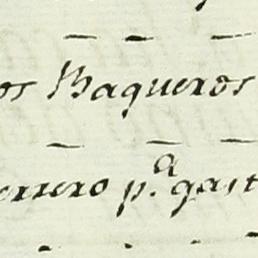 os Baqueros
errero p.ª gast